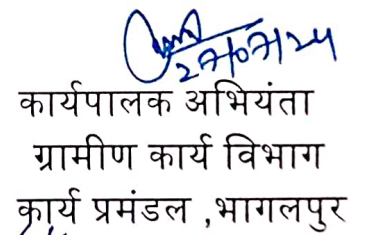 27/07/24
कार्यपालक अभियंता
ग्रामीण कार्य विभाग
कार्य प्रमंडल ,भागलपुर